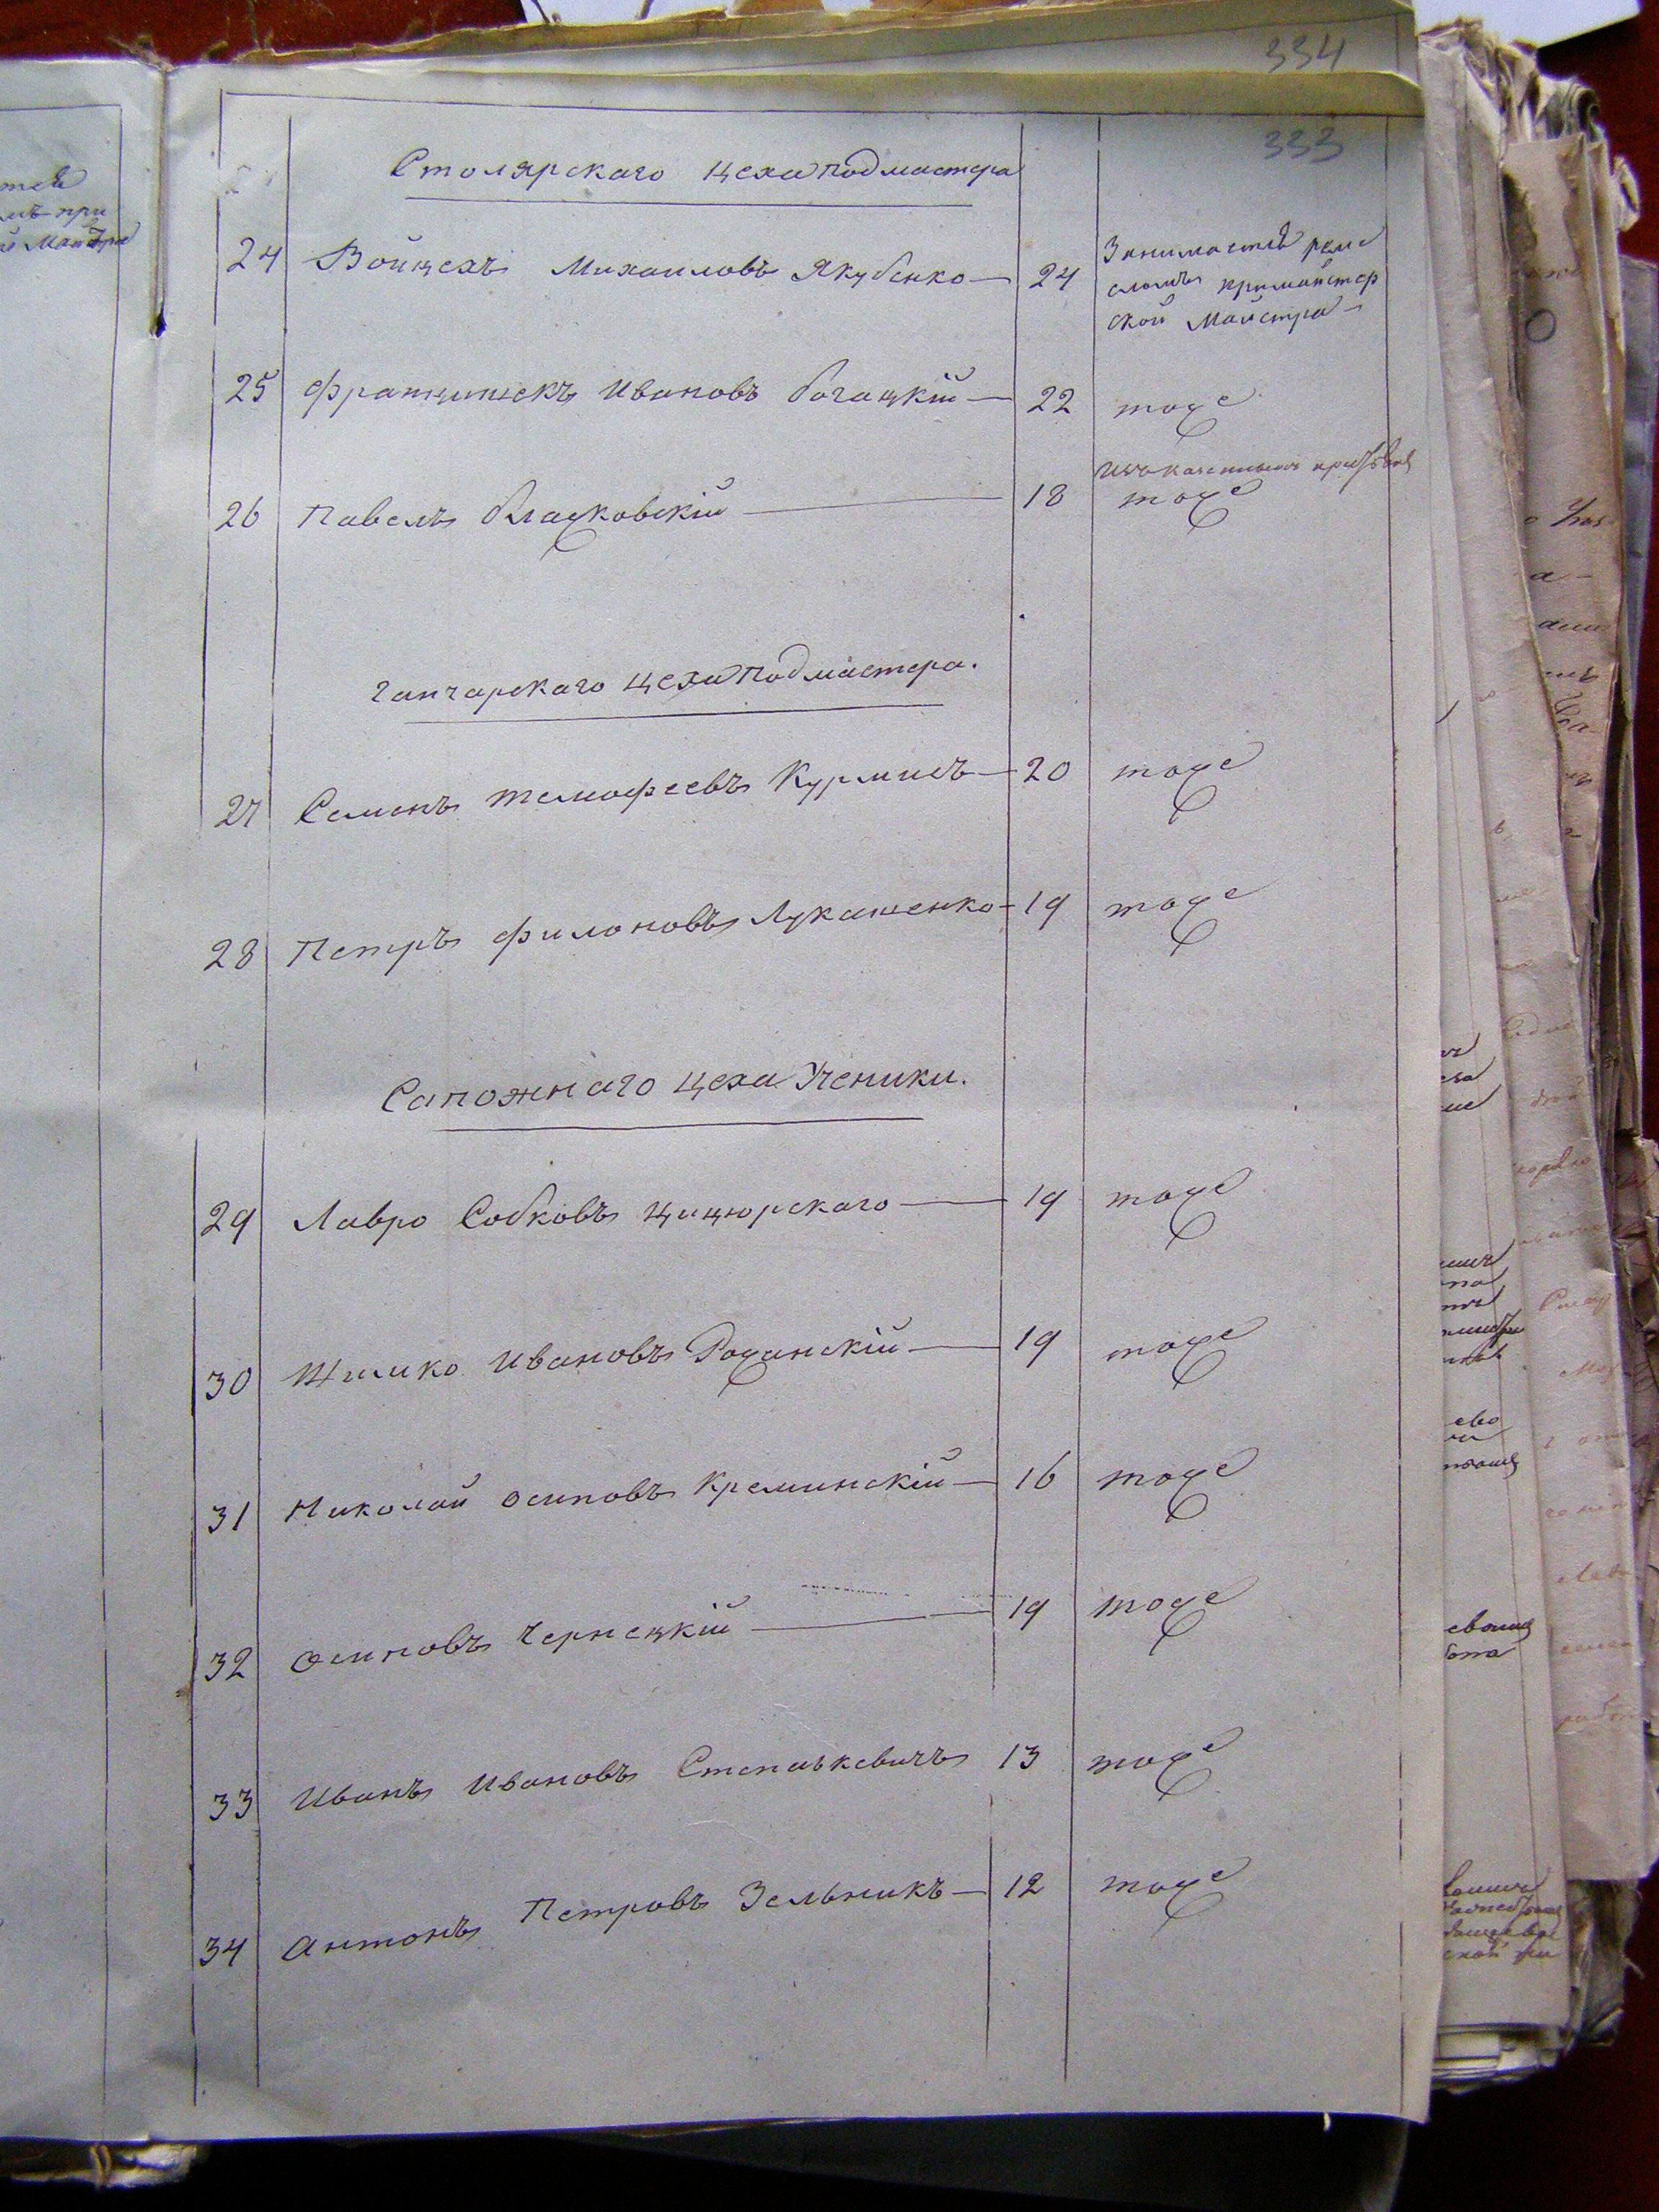 334
333
Столярскаго цеха подмастера
24 Войцехъ Михаиловъ Якубенко — 24 Занимается реме
сломъ при майстер
ской Майстра —
25 Францишекъ Ивановъ Богацкій — 22 тоже
26 Павелъ Власковскій — 18 тоже
Ганчарскаго цеха подмастера.
27 Семенъ Темофеевъ Курмисъ — 20 тоже
28 Петръ Филоновъ Лукашенко — 19 тоже
Сапожнаго цеха Ученики.
29 Лавро Собковъ Цицюрскаго — 19 тоже
30 Тишко Ивановъ Рожанскій — 19 тоже
31 Николай Осиповъ Креминскій — 16 тоже
32 Осиповъ Чернецкій — 19 тоже
33 Иванъ Ивановъ Степанькевичъ 13 тоже
34 Антонъ Петровъ Зельникъ — 12 тоже